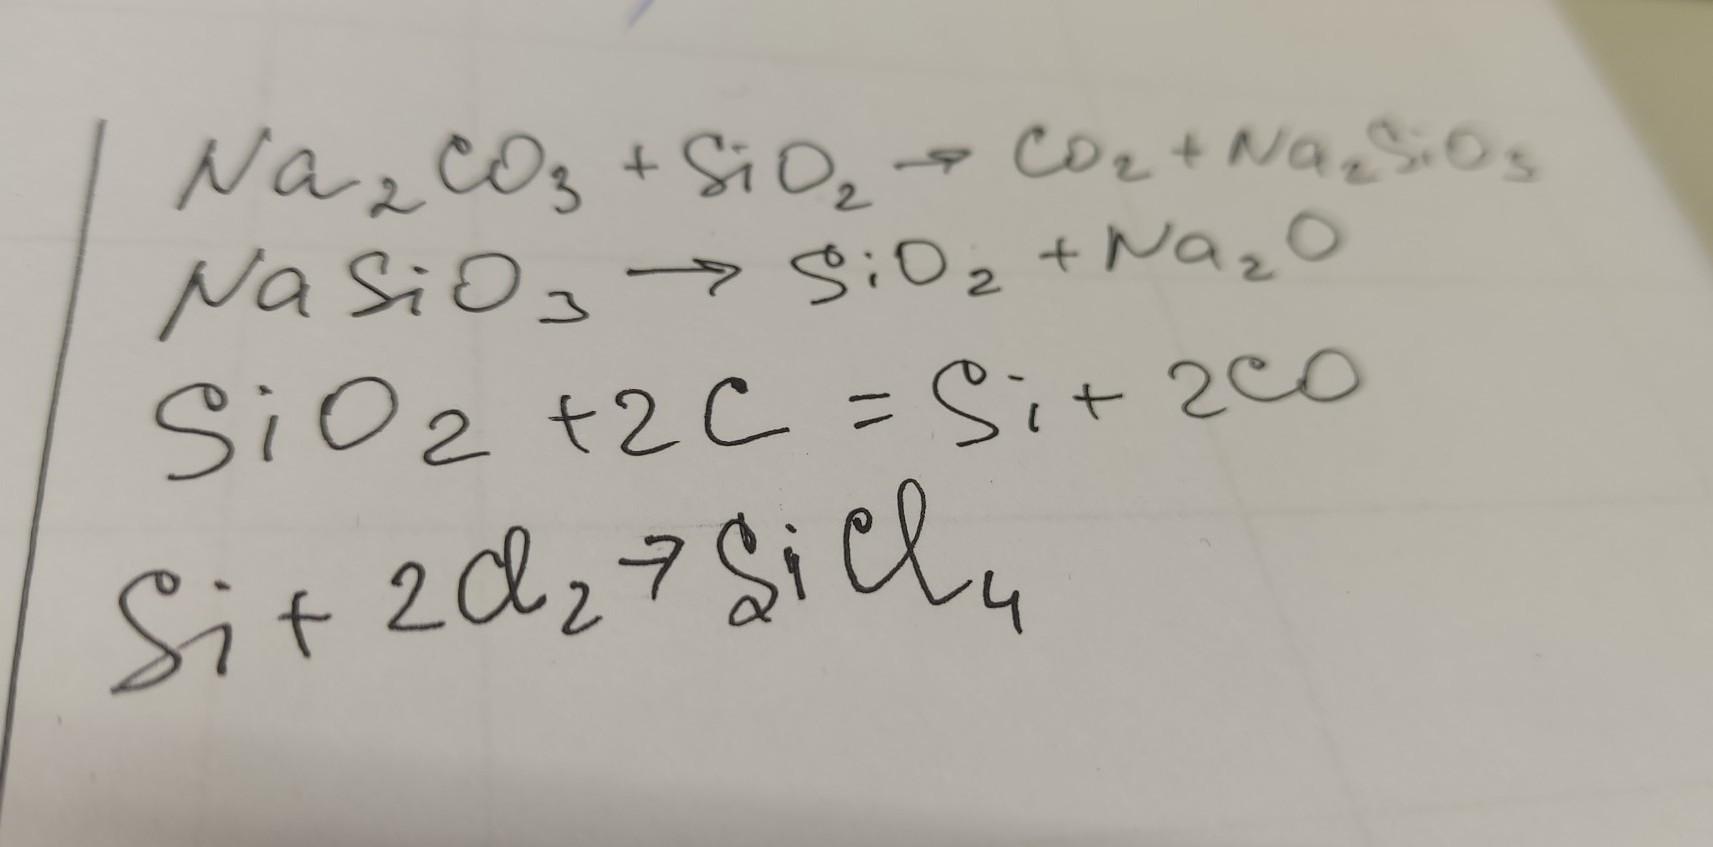 Na₂CO₃ + SiO₂ → CO₂ + Na₂SiO₃
NaSiO₃ → SiO₂ + Na₂O
SiO₂ + 2C = Si + 2CO
Si + 2Cl₂ → SiCl₄